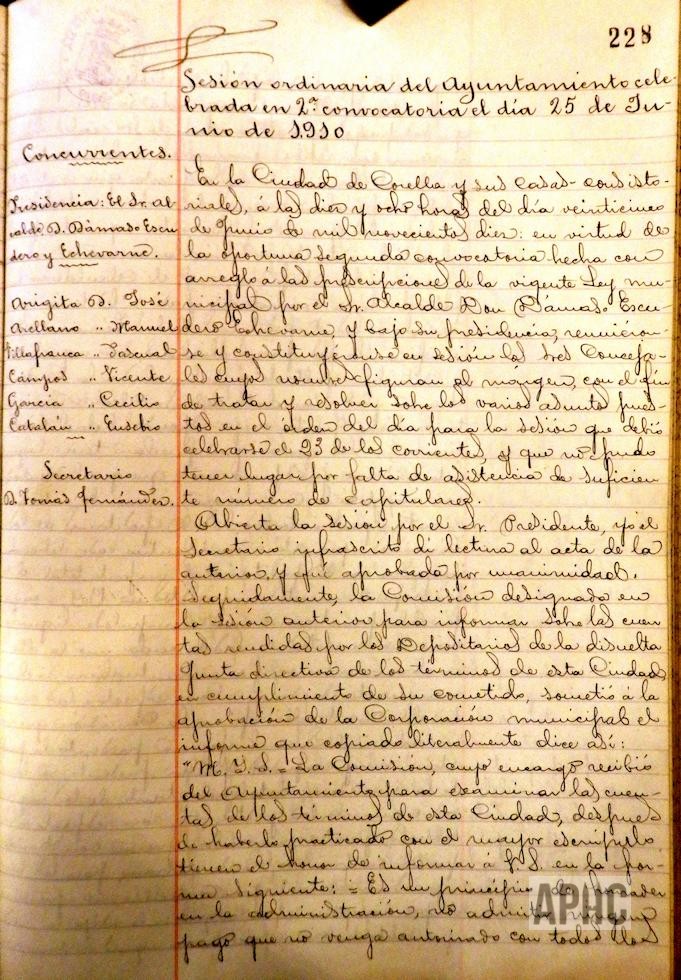 228
Sesión ordinaria del Ayuntamiento cele-
brada en 2ª convocatoria el día 25 de Ju-
nio de 1910
Concurrentes.
Presidencia: El Sr. Al-
calde D. Dámaso Escu
dero y Echevarne.
Arigita D. José
Arellano „ Manuel
Villafranca „ Pascual
Campos „ Vicente
García „ Cecilio
Catalán „ Eusebio
Secretario
D. Tomás Fernández.
En la Ciudad de Corella y sus casas-consisto-
riales, á las diez y ocho horas del día veinticinco
de Junio de mil novecientos diez: en virtud de
la oportuna segunda convocatoria hecha con
arreglo á las prescripciones de la vigente Ley mu-
nicipal por el Sr. Alcalde Don Dámaso Escu-
dero Echevarne, y bajo su presidencia, reuniéron-
se y constituyéronse en sesión los Sres Conceja-
les cuyos nombres figuran al márgen, con el fin
de tratar y resolver sobre los varios asuntos pues-
tos en el orden del día para la sesión que debió
celebrarse el 23 de los corrientes, y que no pudo
tener lugar por falta de asistencia de suficien
te número de capitulares.
Abierta la sesión por el Sr. Presidente, yo el
Secretario infrascrito dí lectura al acta de la
anterior, y fué aprobada por unanimidad.
Seguidamente, la Comisión designada en
la sesión anterior para informar sobre las cuen
tas rendidas por los Depositarios de la disuelta
Junta directiva de los términos de esta Ciudad,
en cumplimiento de su cometido, sometió á la
aprobación de la Corporación municipal el
informe que copiado literalmente dice así:
"M. Y. S. = La Comisión, cuyo encargo recibió
del Ayuntamiento para examinar las cuen-
tas de los términos de esta Ciudad, después
de haberlo practicado con el mayor escrúpulo
tienen el honor de informar á V.S. en la for-
ma siguiente: = Es un principio de
en la administración, no admitir ningún
pago que no venga autorizado con todos los
APHC